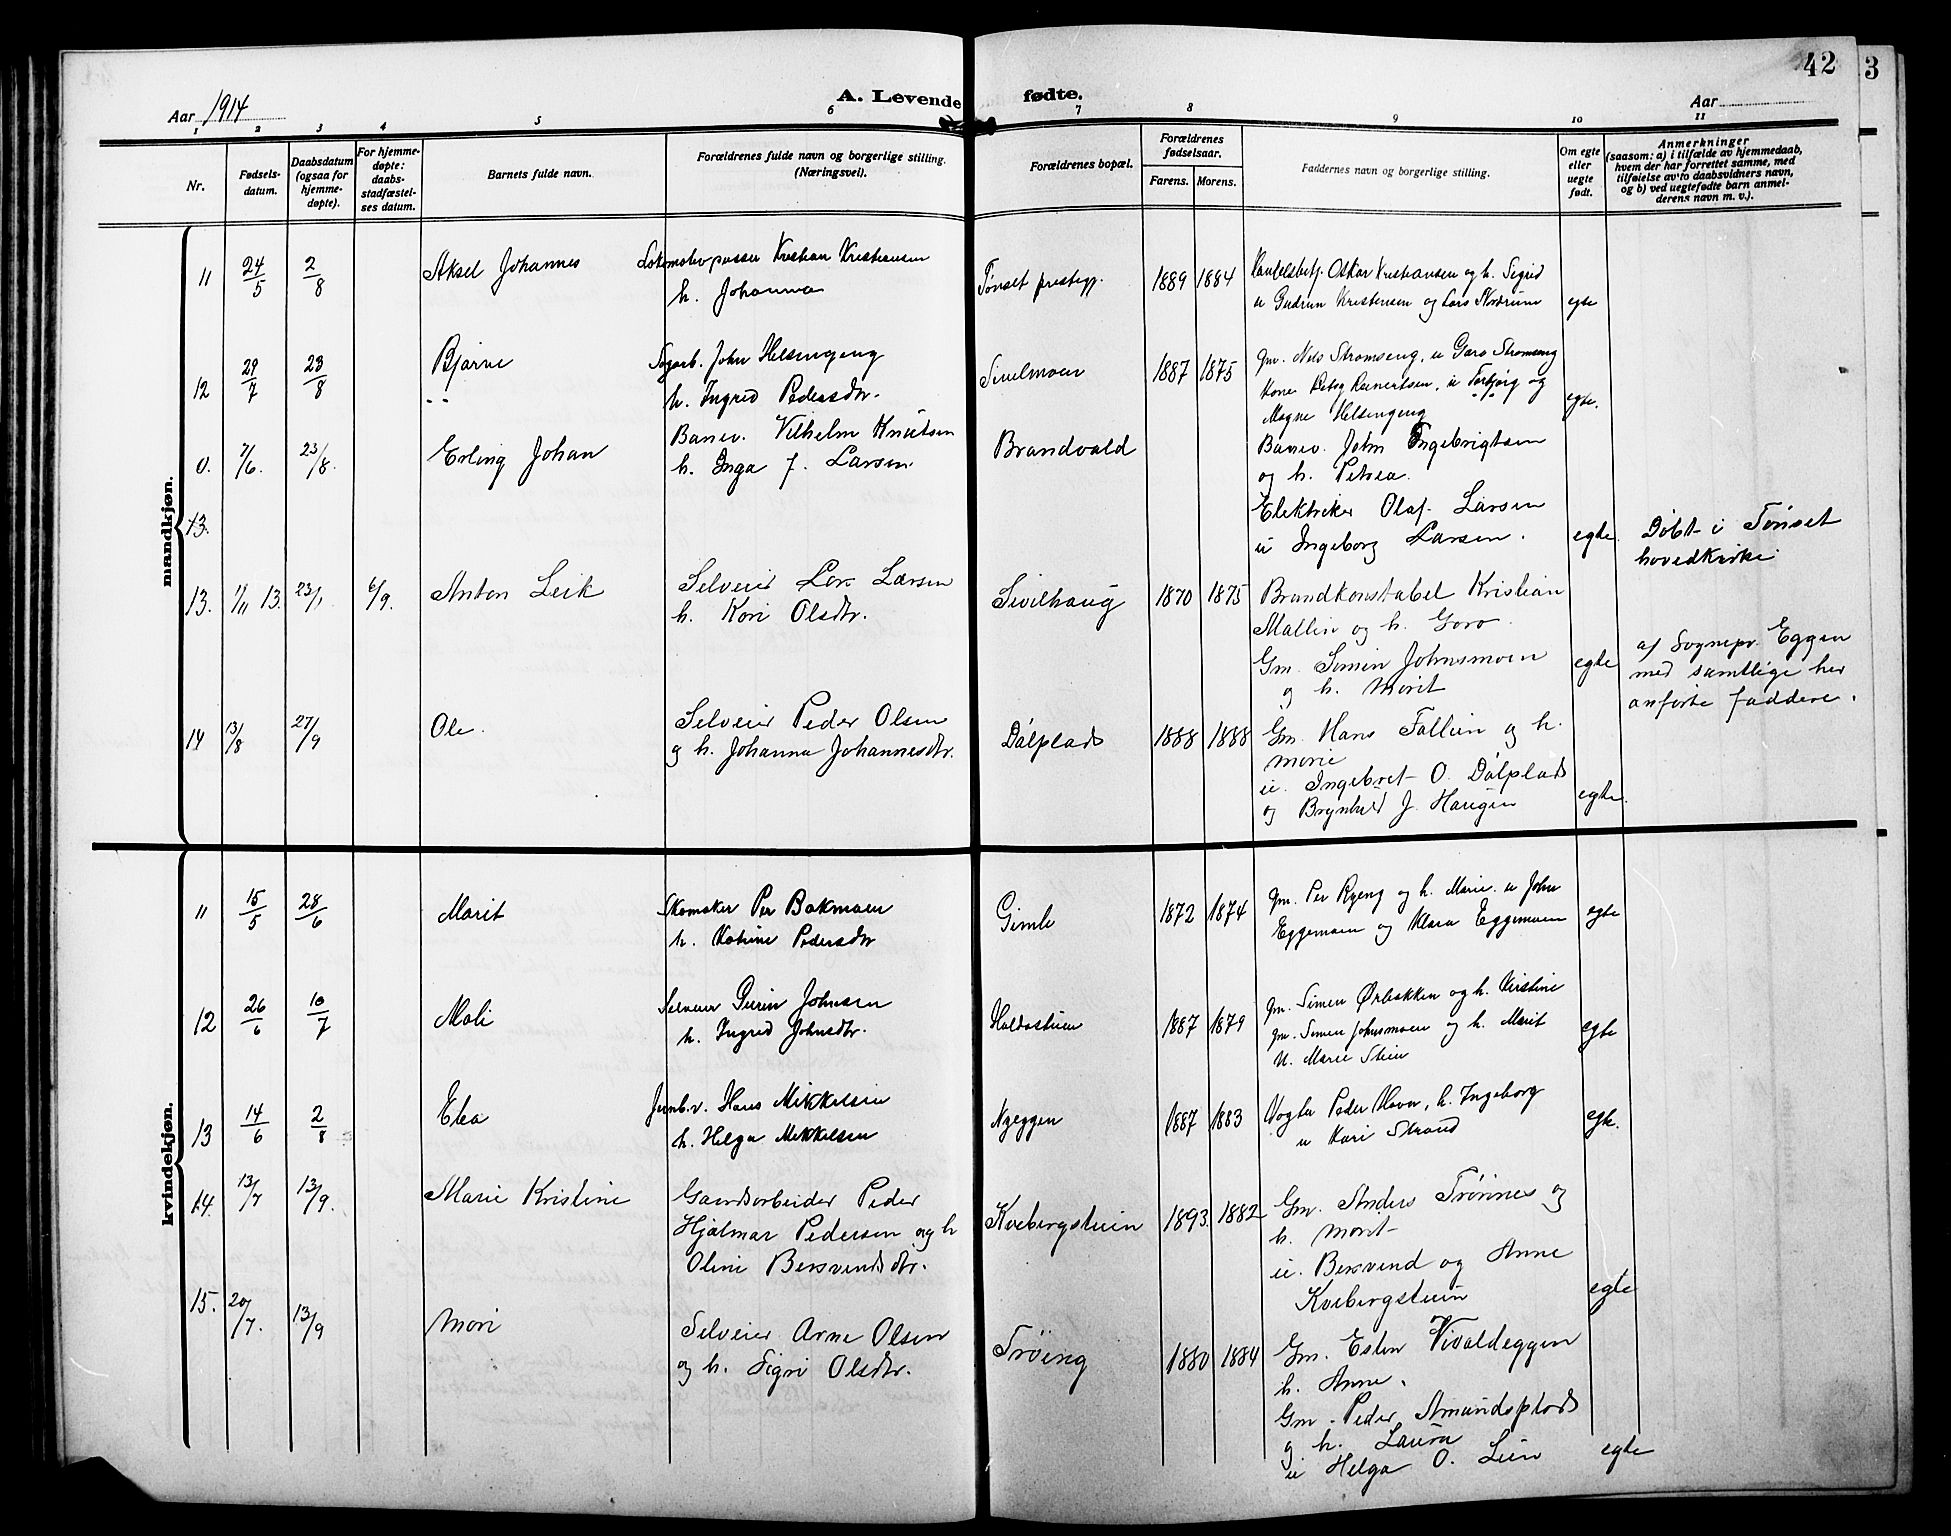 42
3
Aar 1914
A. Levende fødte.
Aar
1 2 3 4 5 6 7 8 9 10 11
Nr.
Fødsels-
datum.
Daabsdatum
(ogsaa for
hjemme-
døpte).
For hjemme-
døpte:
daabs-
stadfæstel-
ses datum.
Barnets fulde navn.
Forældrenes fulde navn og borgerlige stilling.
(Næringsvei).
Forældrenes bopæl.
Forældrenes
fødselsaar.
Farens. Morens.
Faddernes navn og borgerlige stilling.
Om egte
eller
uegte
født.
Anmerkninger
(saasom: a) i tilfælde av hjemmedaab,
hvem der har forrettet samme, med
tilføielse av to daabsvidners navn,
og b) ved uegtefødte barn anmel-
derens navn m. v.).
mandkjøn.
11 24/5 2/8 Aksel Johannes
Kristian Kristiansen
h. Johanna
Tønset prestegj. 1889 1884
Oskar Kristiansen og h. Sigrid
u Gudrun Kristensen og Lars
egte
12 29/7 23/8 Bjarne
John Helsingeng
h. Ingrid Pedersdtr.
Sivilmoen 1887 1875
Gm. Nils Strømseng, u Goro Strømseng
Kone Reinertsen, u Torbjørg og
Magne Helsingeng
egte.
0. 7/6. 23/8. Erling Johan
Banev. Vilhelm Knutsen
h. Inga f. Larsen
Brandvold
Banev. John Ingebrigtsen
og h. Petrea.
Elektriker Olaf Larsen
u Ingeborg Larsen.
egte.
13.
Døbt i Tønset
hovedkirke.
13. 1/11 13. 23/1 6/9. Anton Leik
Selveier Lars Larsen
h. Kari Olsdtr.
Sivilhaug 1870 1875
Brandkonstabel Kristian
Mallin og h. Goro
Gm. Simen Johnsmoen
og h. Marit
egte
af Sognepr. Eggen
med samtlige her
anførte faddere.
14 13/8 27/9 Ole.
Selveier Peder Olsen
og h. Johanna Johannesdtr.
Dalplads 1888 1888
Gm. Hans Fallien og h.
Marie
u. Ingebret O. Dalplads
og Brynhild J. Haugen
egte.
kvindekjøn.
11 15/5 28/6 Marit
Skomaker Per Bakmoen
h. Katrine Pedersdtr
Gimle 1872 1874
Gm. Per Ryeng og h. Marie. u John
Eggemoen og Klara Eggemoen
egte
12 26/6 10/7 Mali
Selveier Johnsen
h. Ingrid Johnsdtr.
Haldostuen 1887 1879
Gm. Simen Ørbekken og h. Kirstine
Gm. Simen Johnsmoen og h. Marit
u. Marie Stuen
egte
13 14/6 2/8 Eba
Jernb.v. Hans Mikkelsen
h. Helga Mikkelsen
Nyeggen 1887 1883
Vogter Peder h. Ingeborg
u Kari Strand
egte.
14. 13/7 13/9. Marie Kristine
Gaardsarbeider Peder
Hjalmar Pedersen og h
Oline Bersvendsdtr.
Kvebergstuen 1893. 1882
Gm. Anders Trønnes og
h. Marit
u. Bersvend og Anne
Kvebergstuen
egte
15. 20/7. 13/9 Mari
Selveier Arne Olsen
og h. Sigri Olsdtr.
Trøeng 1880 1884
Gm. Esten Vivaldeggen
h. Anne.
Gm. Peder Amundsplads
og h. Laura
u Helga O. Lien
egte